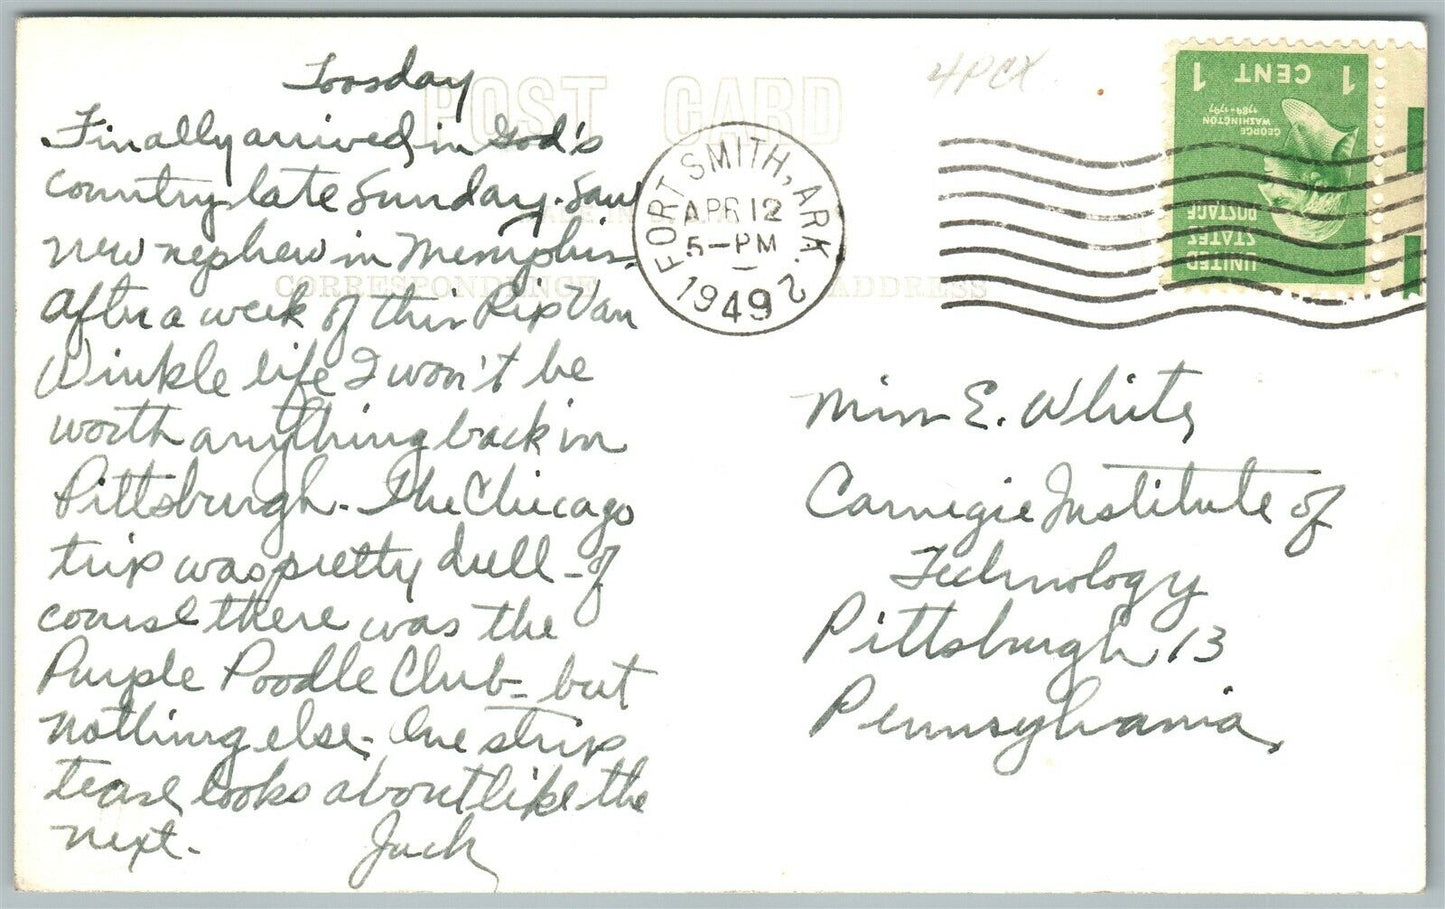 Toosday
Finally arrived in God's
country late Sunday. Saw
new nephew in Memphis.
After a week of this Rip Van
Winkle life I won't be
worth anything back in
Pittsburgh. The Chicago
trip was pretty dull - of
course there was the
Purple Poodle Club - but
nothing else. One strip
tease looks about like the
next. Jack
POST CARD
CORRESPONDENCE
ADDRESS
4PCX
FORT SMITH, ARK. 2
APR 12
5-PM
1949
1 CENT 1
GEORGE
WASHINGTON
1789-1797
UNITED
STATES
POSTAGE
Miss E. White,
Carnegie Institute of
Technology
Pittsburgh 13
Pennsylvania,